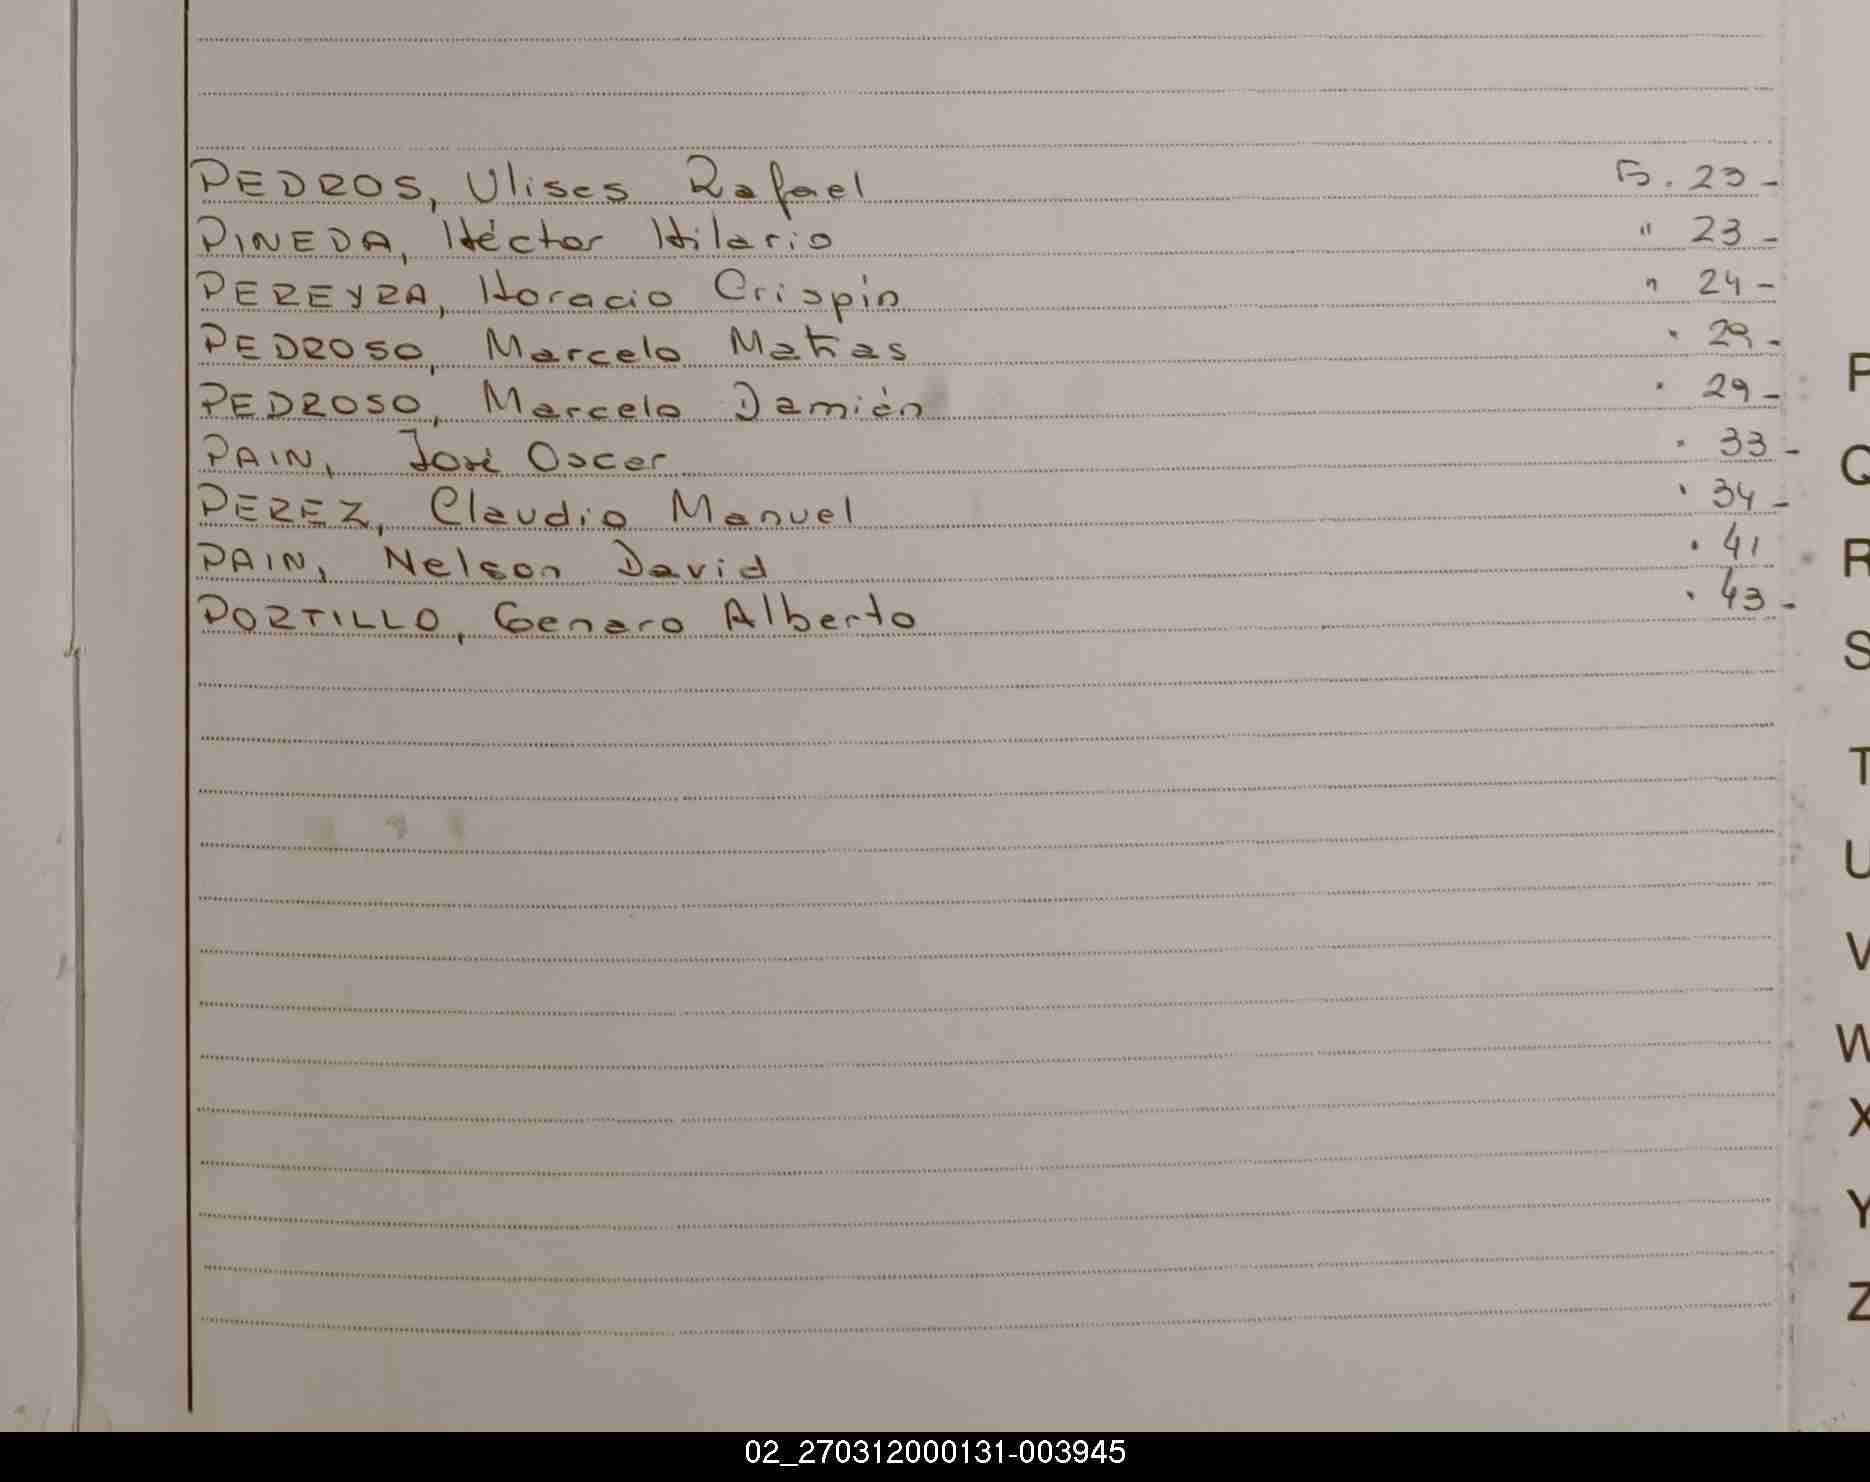 PEDROS, Ulises Rafael F. 23-
PINEDA, Héctor Hilario " 23-
PEREYRA, Horacio Crispín " 24-
PEDROSO, Marcelo Matías " 29-
PEDROSO, Marcelo Damián " 29-
PAIN, José Oscar " 33-
PEREZ, Claudio Manuel " 34-
PAIN, Nelson David " 41
PORTILLO, Genaro Alberto " 43-
P
Q
R
S
T
U
V
W
X
Y
Z
02_270312000131-003945